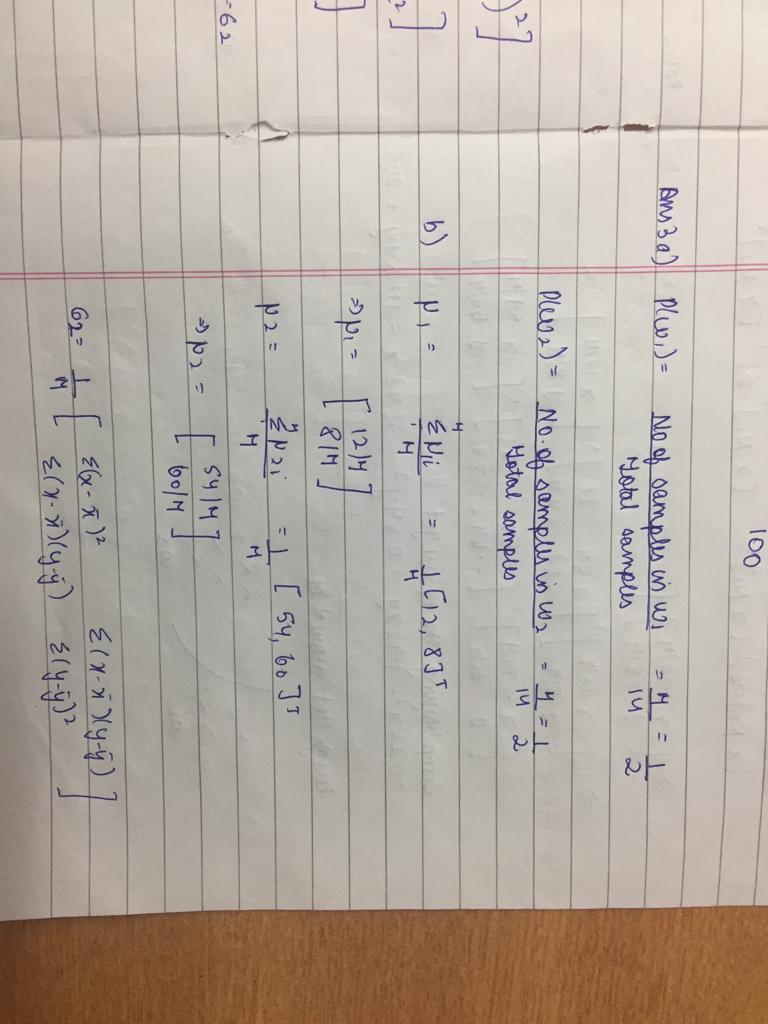 100
Ans 3 a) P(ω₁) = No of samples in ω₁ / Total samples = 7/14 = 1/2
P(ω₂) = No. of samples in ω₂ / Total samples = 7/14 = 1/2
b) μ₁ = Σᵢ⁷ μ₁ᵢ / 7 = 1/7 [12, 8]ᵀ
⇒ μ₁ = [ 12/7
8/7 ]
μ₂ = Σᵢ⁷ μ₂ᵢ / 7 = 1/7 [54, 60]ᵀ
⇒ μ₂ = [ 54/7
60/7 ]
σ₂ = 1/7 [ Σ(x-x̄)² Σ(x-x̄)(y-ȳ)
Σ(x-x̄)(y-ȳ) Σ(y-ȳ)² ]
)² ]
² ]
]
-62